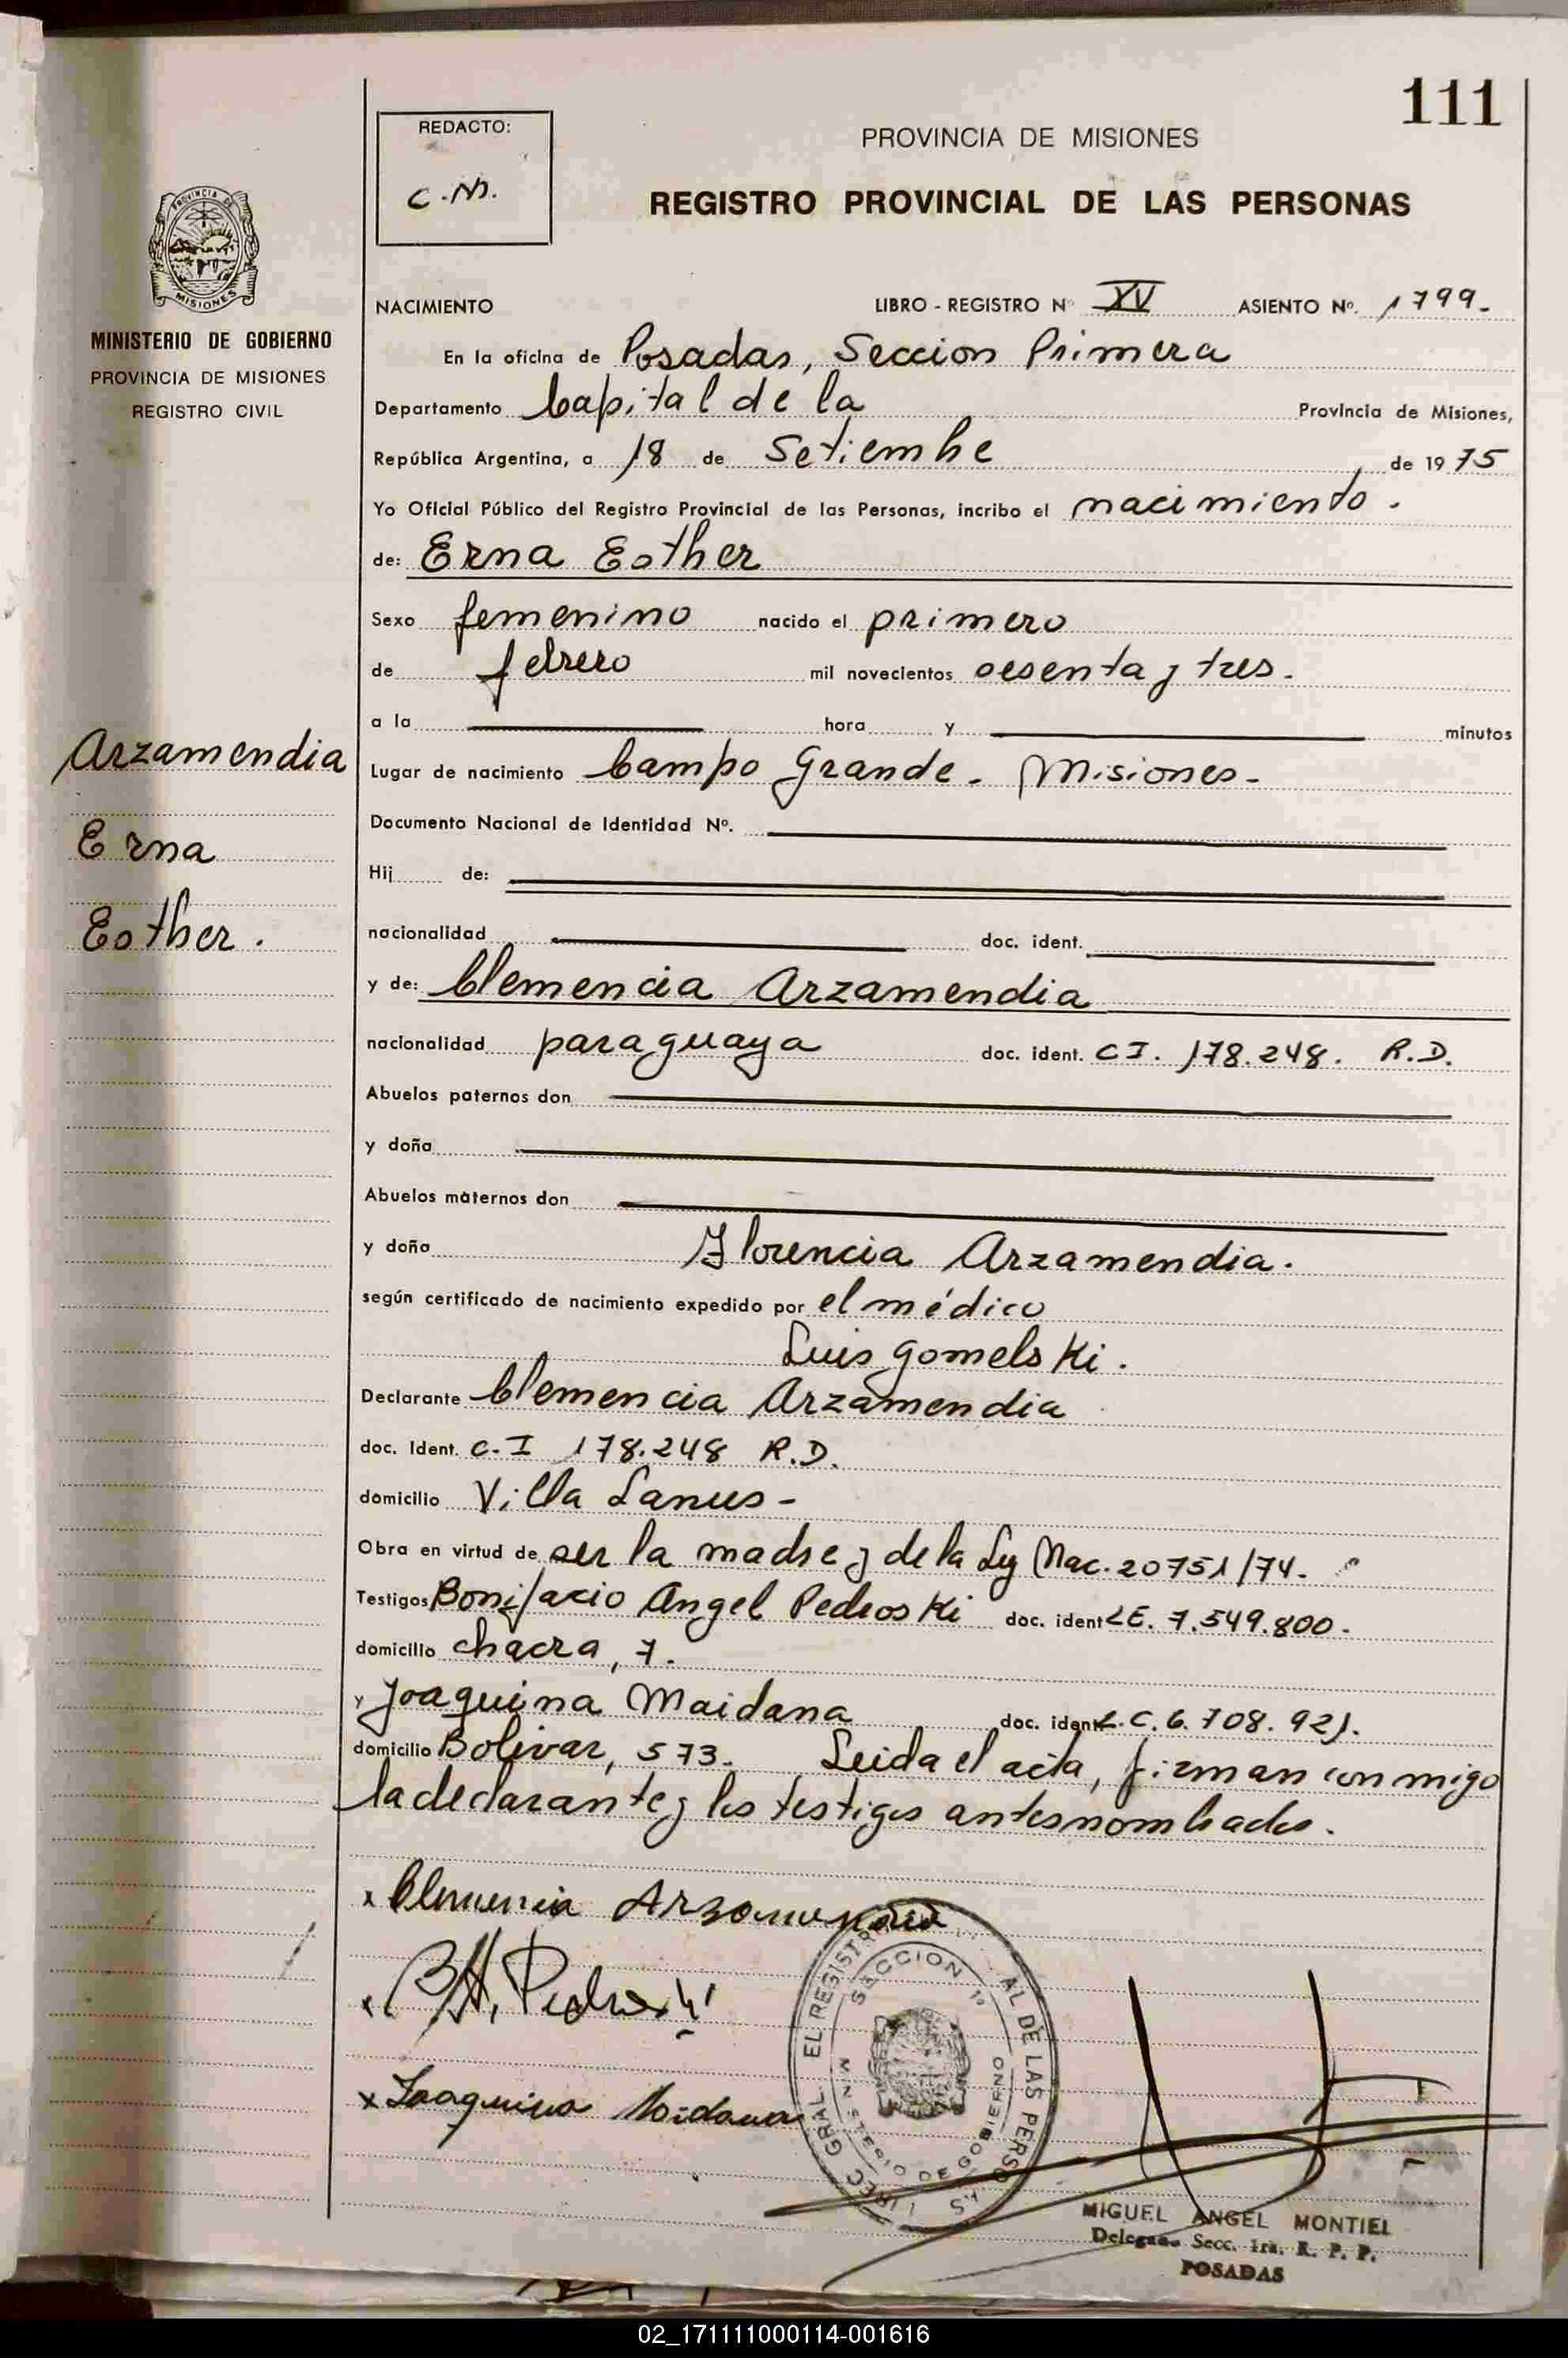 111
REDACTO:
C.M.
PROVINCIA DE MISIONES
REGISTRO PROVINCIAL DE LAS PERSONAS
MISIONES
MINISTERIO DE GOBIERNO
PROVINCIA DE MISIONES
REGISTRO CIVIL
NACIMIENTO LIBRO - REGISTRO Nº XV ASIENTO Nº. 1799.
En la oficina de Posadas, Seccion Primera
Departamento Capital de la Provincia de Misiones,
República Argentina, a 18 de Setiembre de 1975
Yo Oficial Público del Registro Provincial de las Personas, incribo el nacimiento.
de: Erna Esther
Sexo femenino nacido el primero
de febrero mil novecientos sesenta y tres.
a la hora y minutos
Arzamendia
Erna
Esther.
Lugar de nacimiento Campo Grande. Misiones-
Documento Nacional de Identidad Nº.
Hij de:
nacionalidad doc. ident.
y de: Clemencia Arzamendia
nacionalidad paraguaya doc. ident. CI. 178.248. R.D.
Abuelos paternos don
y doña
Abuelos maternos don
y doña Florencia Arzamendia.
según certificado de nacimiento expedido por el médico
Luis Gomelski.
Declarante Clemencia Arzamendia
doc. Ident. C.I 178.248 R.D.
domicilio Villa Lanus-
Obra en virtud de ser la madre y de la Ley Nac. 20751/74.
Testigos Bonifacio Angel Pedroski doc. ident LE. 7.549.800.
domicilio chacra, 7.
y Joaquina Maidana doc. ident L.C. 6.708.921.
domicilio Bolivar, 573. Leida el acta, firman conmigo
la declarante y los testigos antesnombrados.
x Clemencia Arzamendia
x B.A. Pedroski
x Joaquina Maidana
SECCION 1º
MINISTERIO DE GOBIERNO
MIGUEL ANGEL MONTIEL
Delegado Secc. 1ra. R. P. P.
POSADAS
02_171111000114-001616